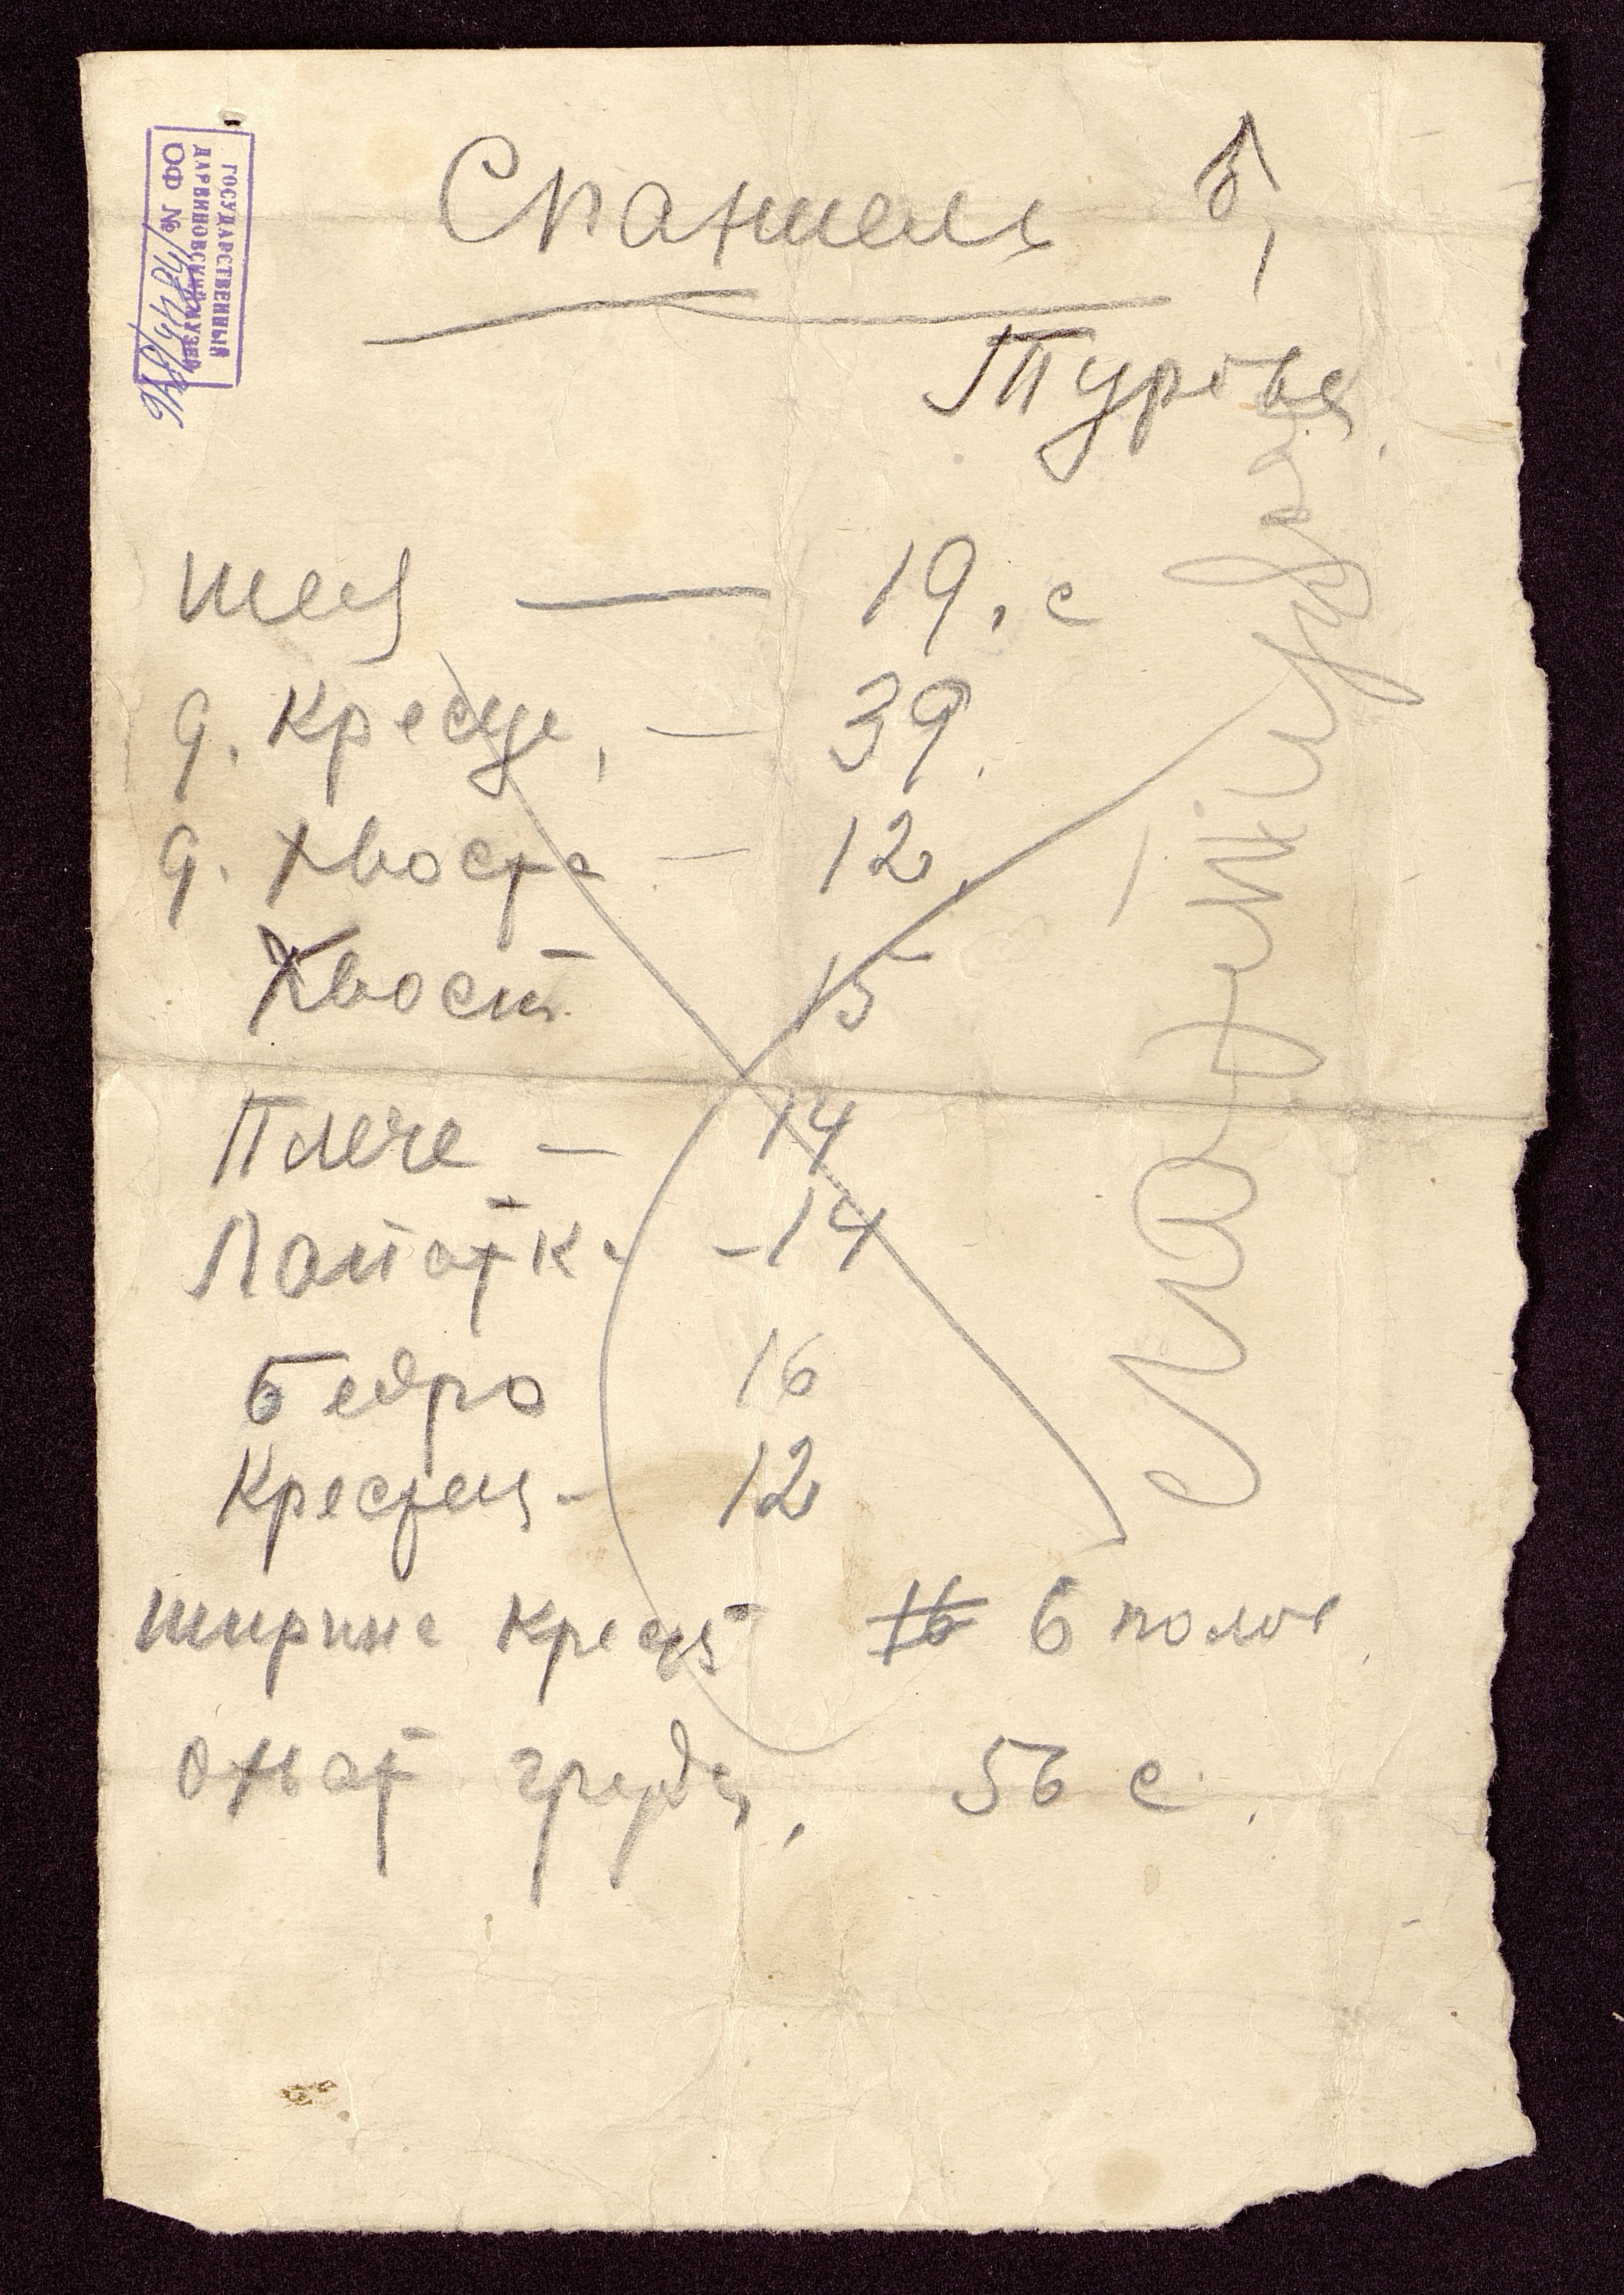 Спаниель
Турова
ГОСУДАРСТВЕННЫЙ
ДАРВИНОВСКИЙ МУЗЕЙ
ОФ №
шея — 19, с
д. Крестце, — 39.
д. хвоста — 12,
Хвост 15
Плече — 14
Лопатк. - 14
Бедро 16
Крестец - 12
ширина Крестц 16 6 полов.
охват груди, 56 с.